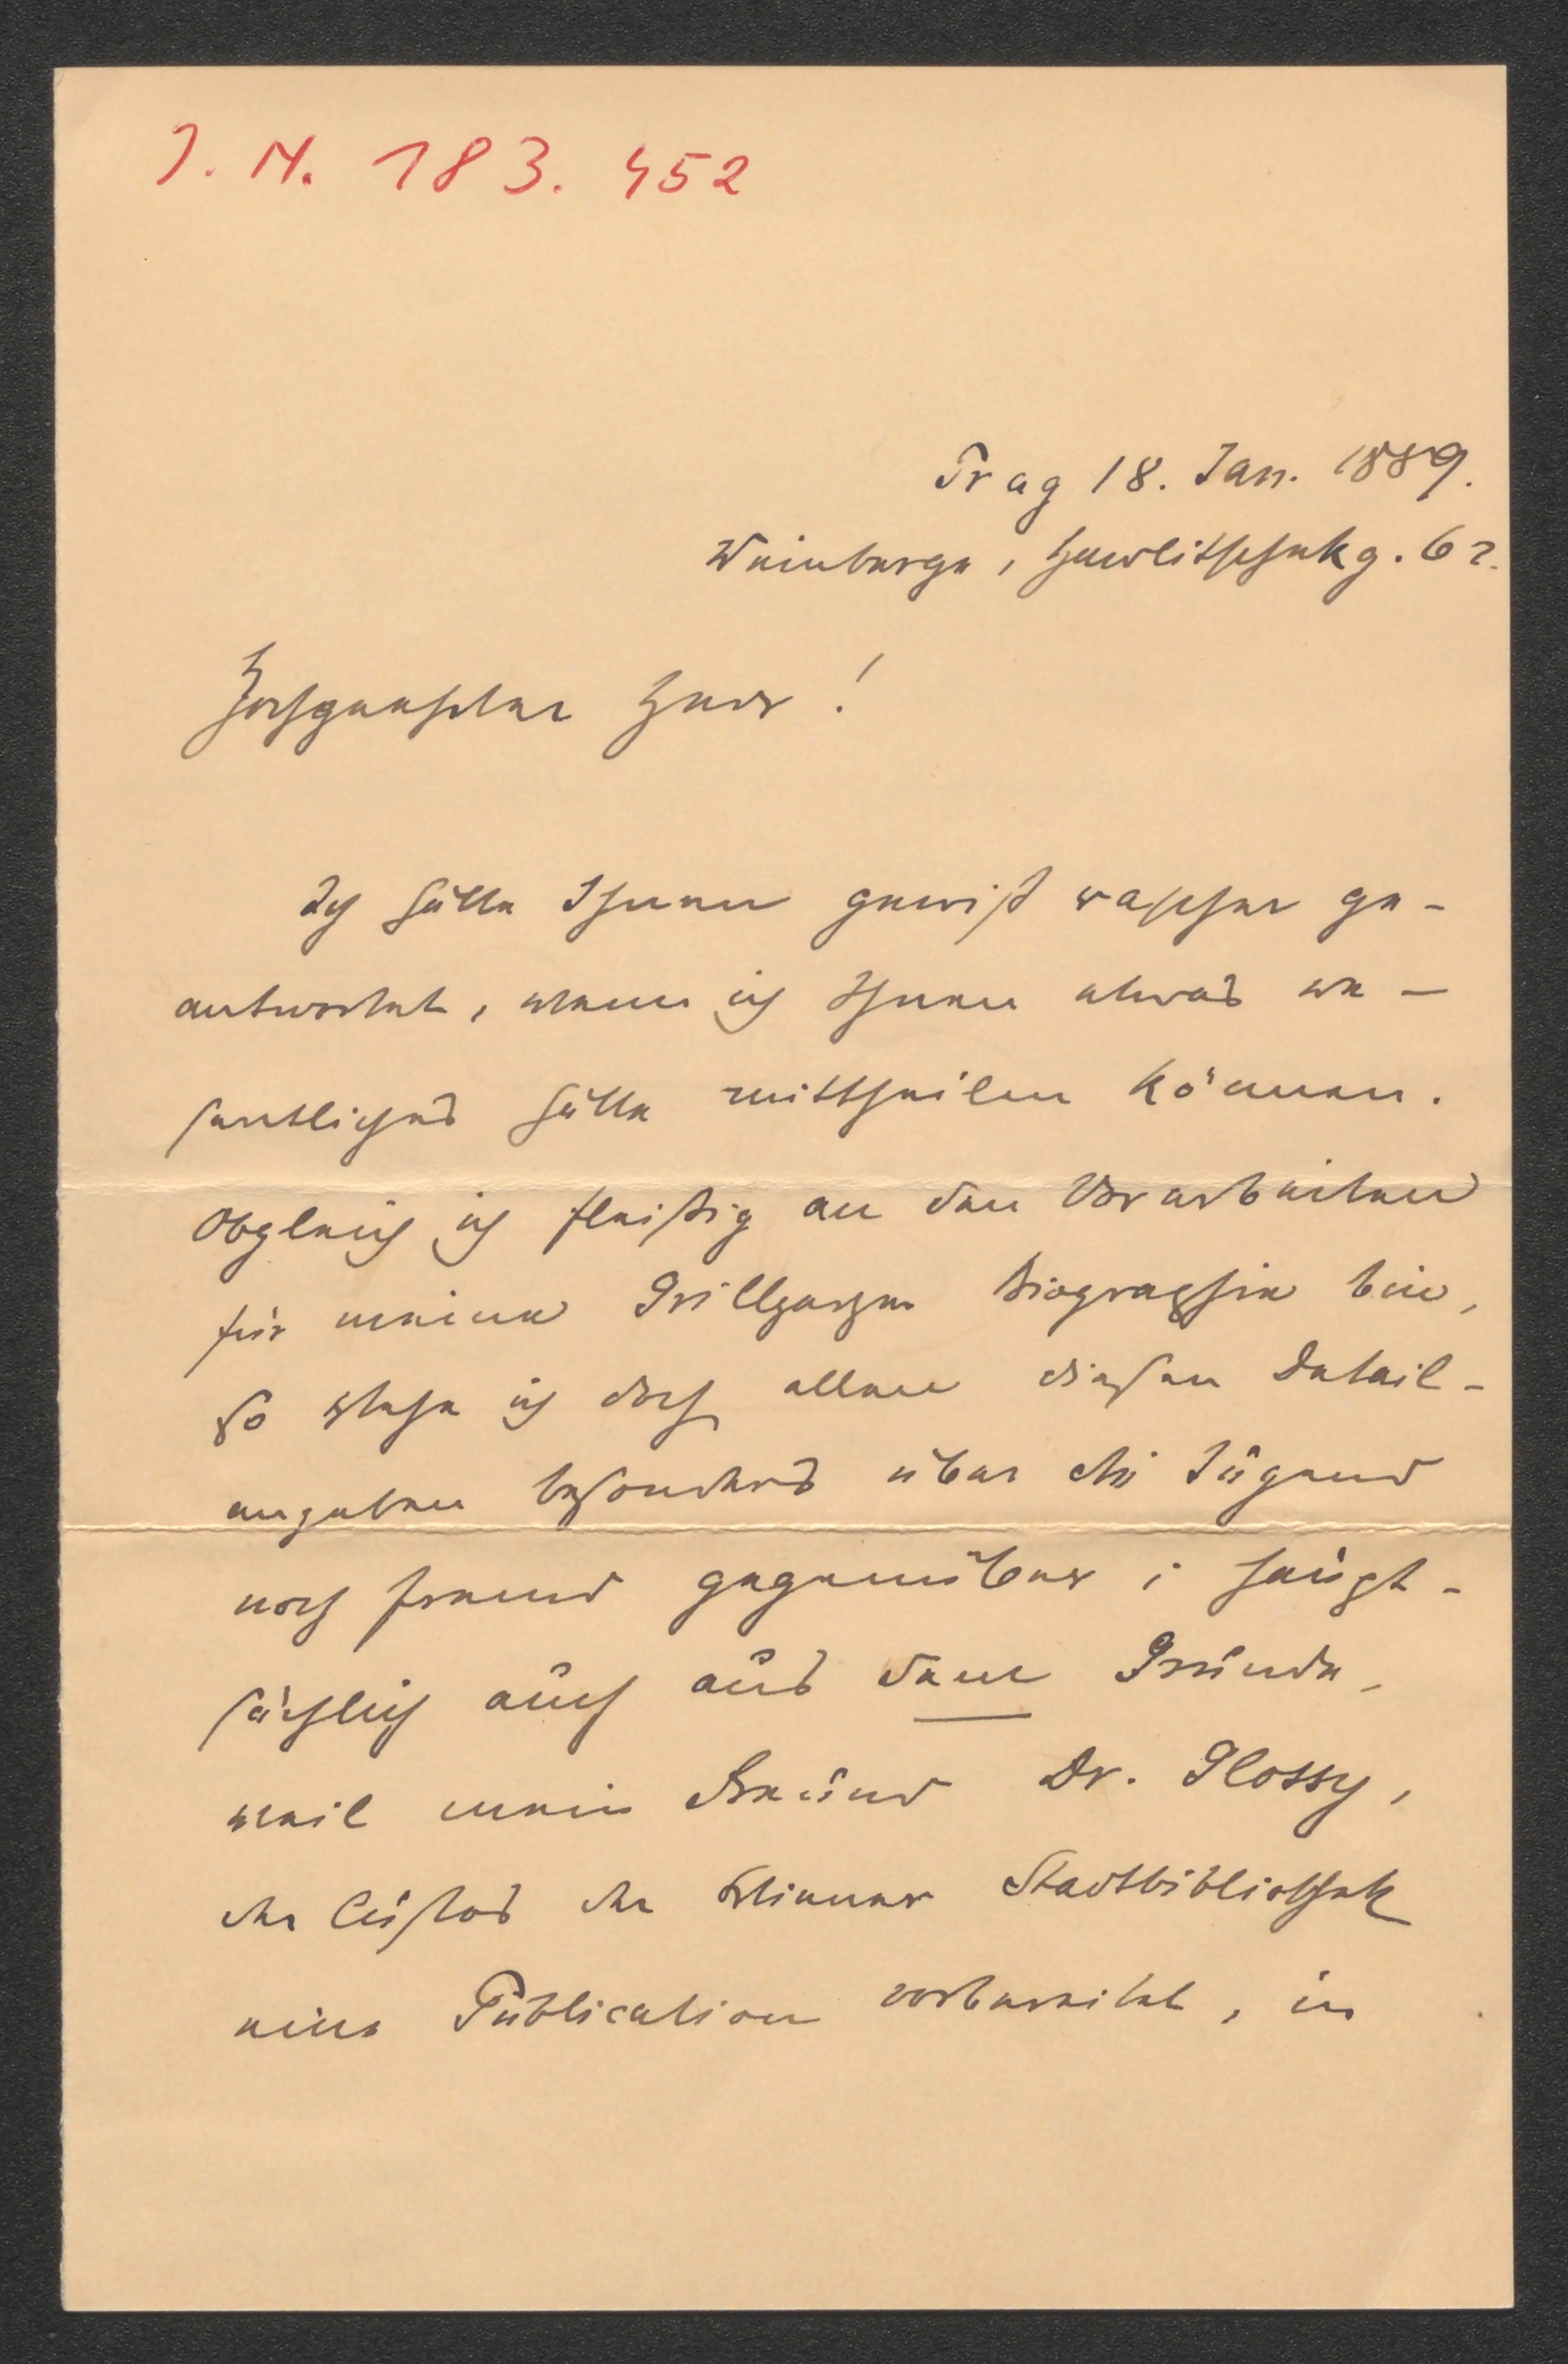 J. N. 183.452
Prag 18. Jan. 1889.
Weinberge, Hawlitschekg. 62.
Hochgeehrter Herr!
Ich hätte Ihnen gewiß rascher ge-
antwortet, wenn ich Ihnen etwas we-
sentliches hätte mittheilen können.
Obgleich ich fleißig an den Vorarbeiten
für meine Grillparzer Biographie bin,
so stehe ich doch allen diesen Detail-
angaben besonders über die Jugend
noch fremd gegenüber; haupt-
sächlich auch aus dem Grunde,
weil mein Freund Dr. Glossy,
der Custos der Wiener Stadtbibliothek
eine Publication vorbereitet, in